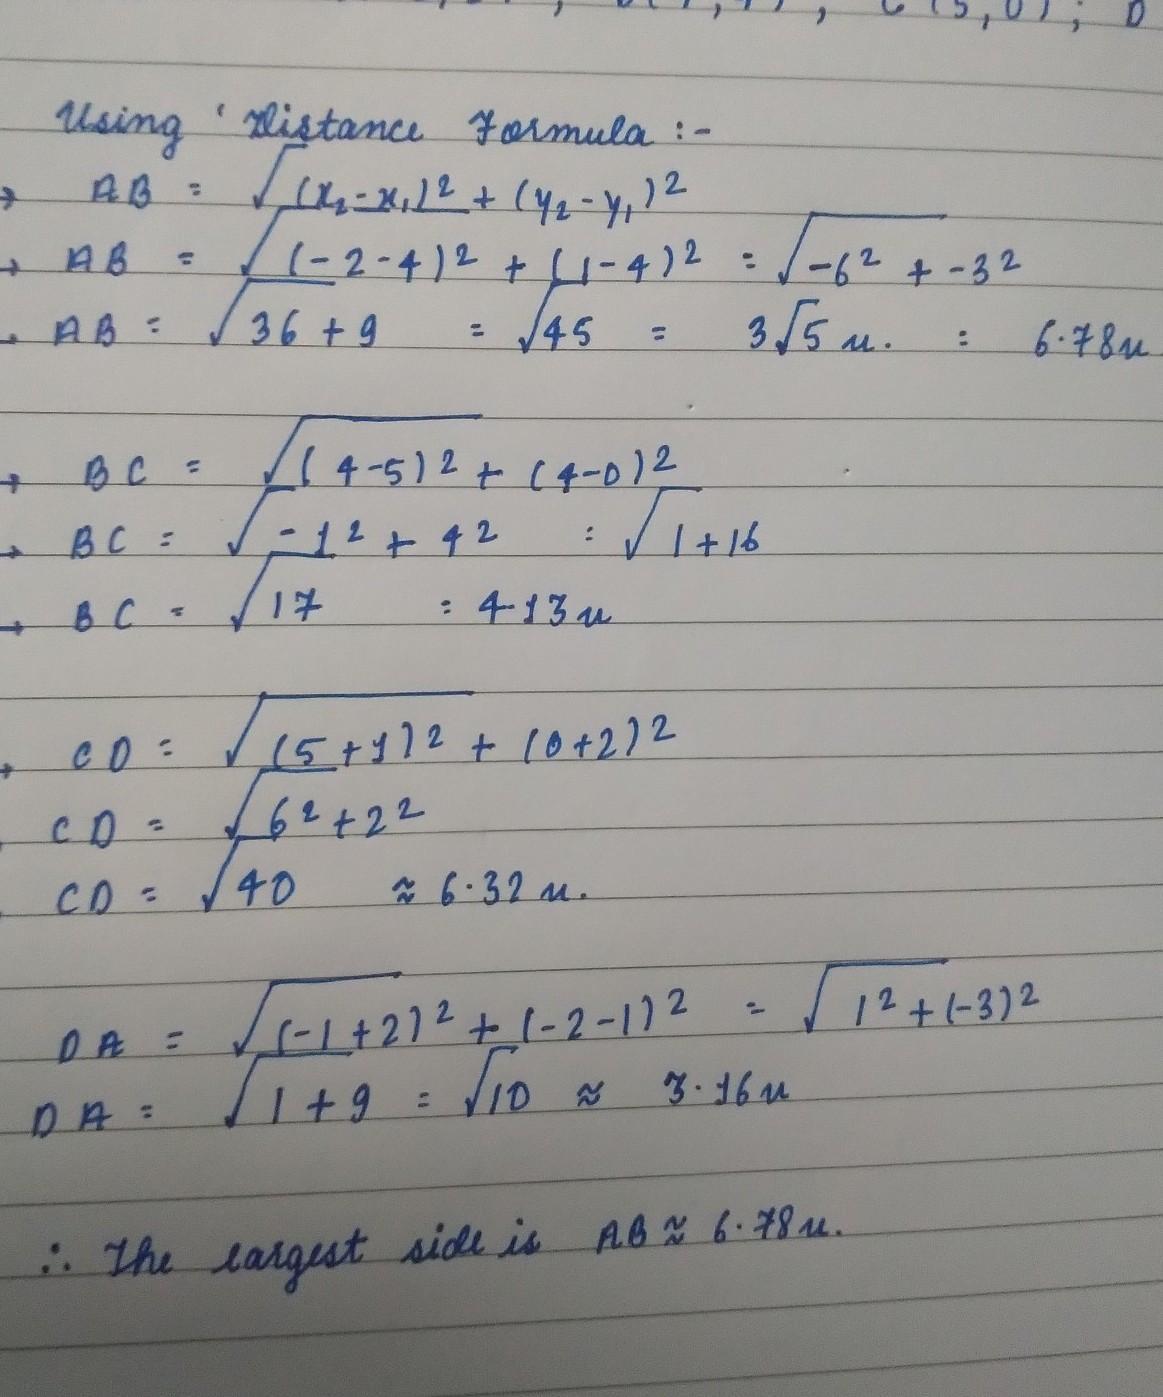 C (5,0) ; D
Using ' Distance Formula :-
→ AB = √(x₂-x₁)² + (y₂-y₁)²
→ AB = √(-2-4)² + (1-4)² = √-6² + -3²
→ AB = √36+9 = √45 = 3√5 u. = 6.78u
→ BC = √(4-5)² + (4-0)²
→ BC = √-1² + 4² = √1+16
→ BC = √17 = 4.13u
→ CD = √(5+1)² + (0+2)²
CD = √6²+2²
CD = √40 ≈ 6.32 u.
DA = √(-1+2)² + (-2-1)² = √1²+(-3)²
DA = √1+9 = √10 ≈ 3.16u
∴ The largest side is AB ≈ 6.78u.